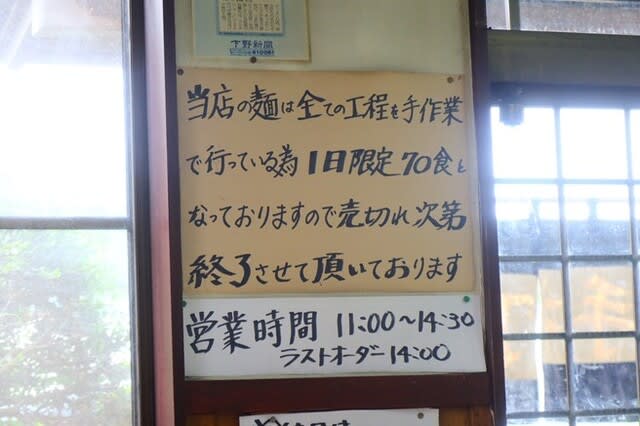 下野新聞
当店の麺は全ての工程を手作業
で行っている為1日限定70食と
なっておりますので売切れ次第
終了させて頂いております
営業時間 11:00〜14:30
ラストオーダー14:00